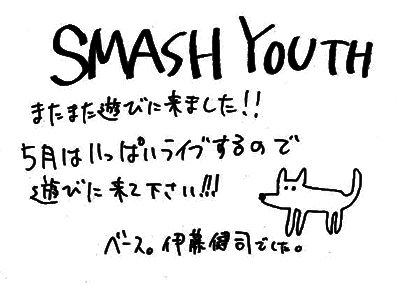 SMASH YOUTH
またまた遊びに来ました!!
5月はいっぱいライブするので
遊びに来て下さい!!!
ベース。伊藤健司でした。